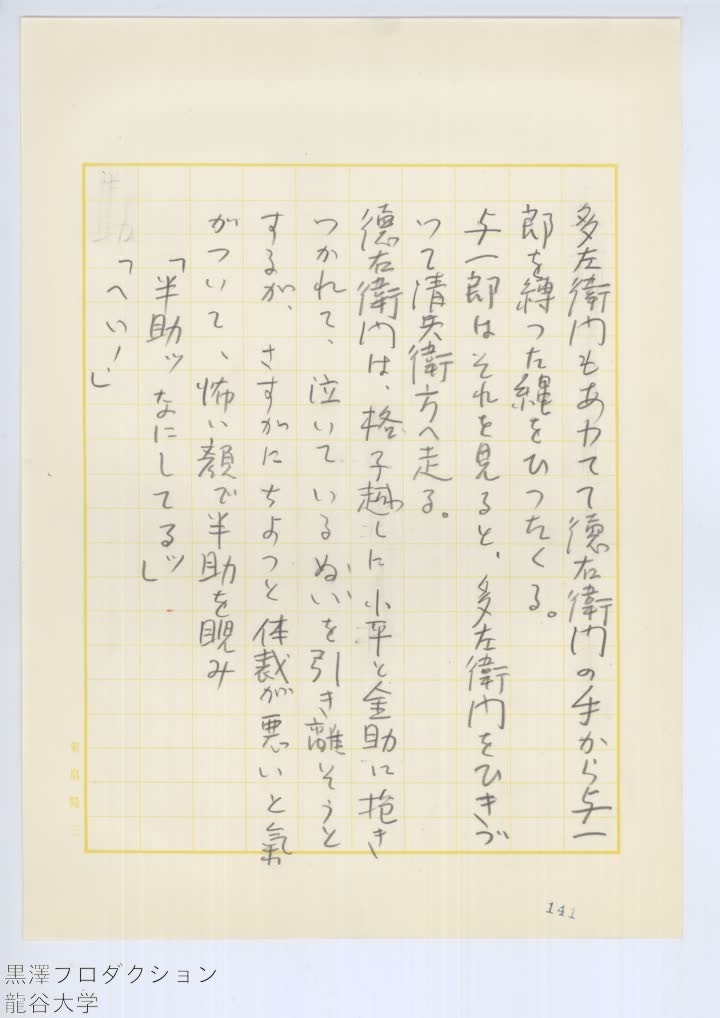 多左衛門もあわてて徳右衛門の手から与一
郎を縛つた縄をひつたくる。
与一郎はそれを見ると、多左衛門をひきづ
つて清兵衛方へ走る。
徳右衛門は、格子越しに小平と金助に抱き
つかれて、泣いているぬいを引き離そうと
するが、さすがにちよつと体裁が悪いと氣
がついて、怖い顔で半助を睨み
「半助ッ なにしてるッ」
「へい！」
半助
141
黒澤プロダクション
龍谷大学